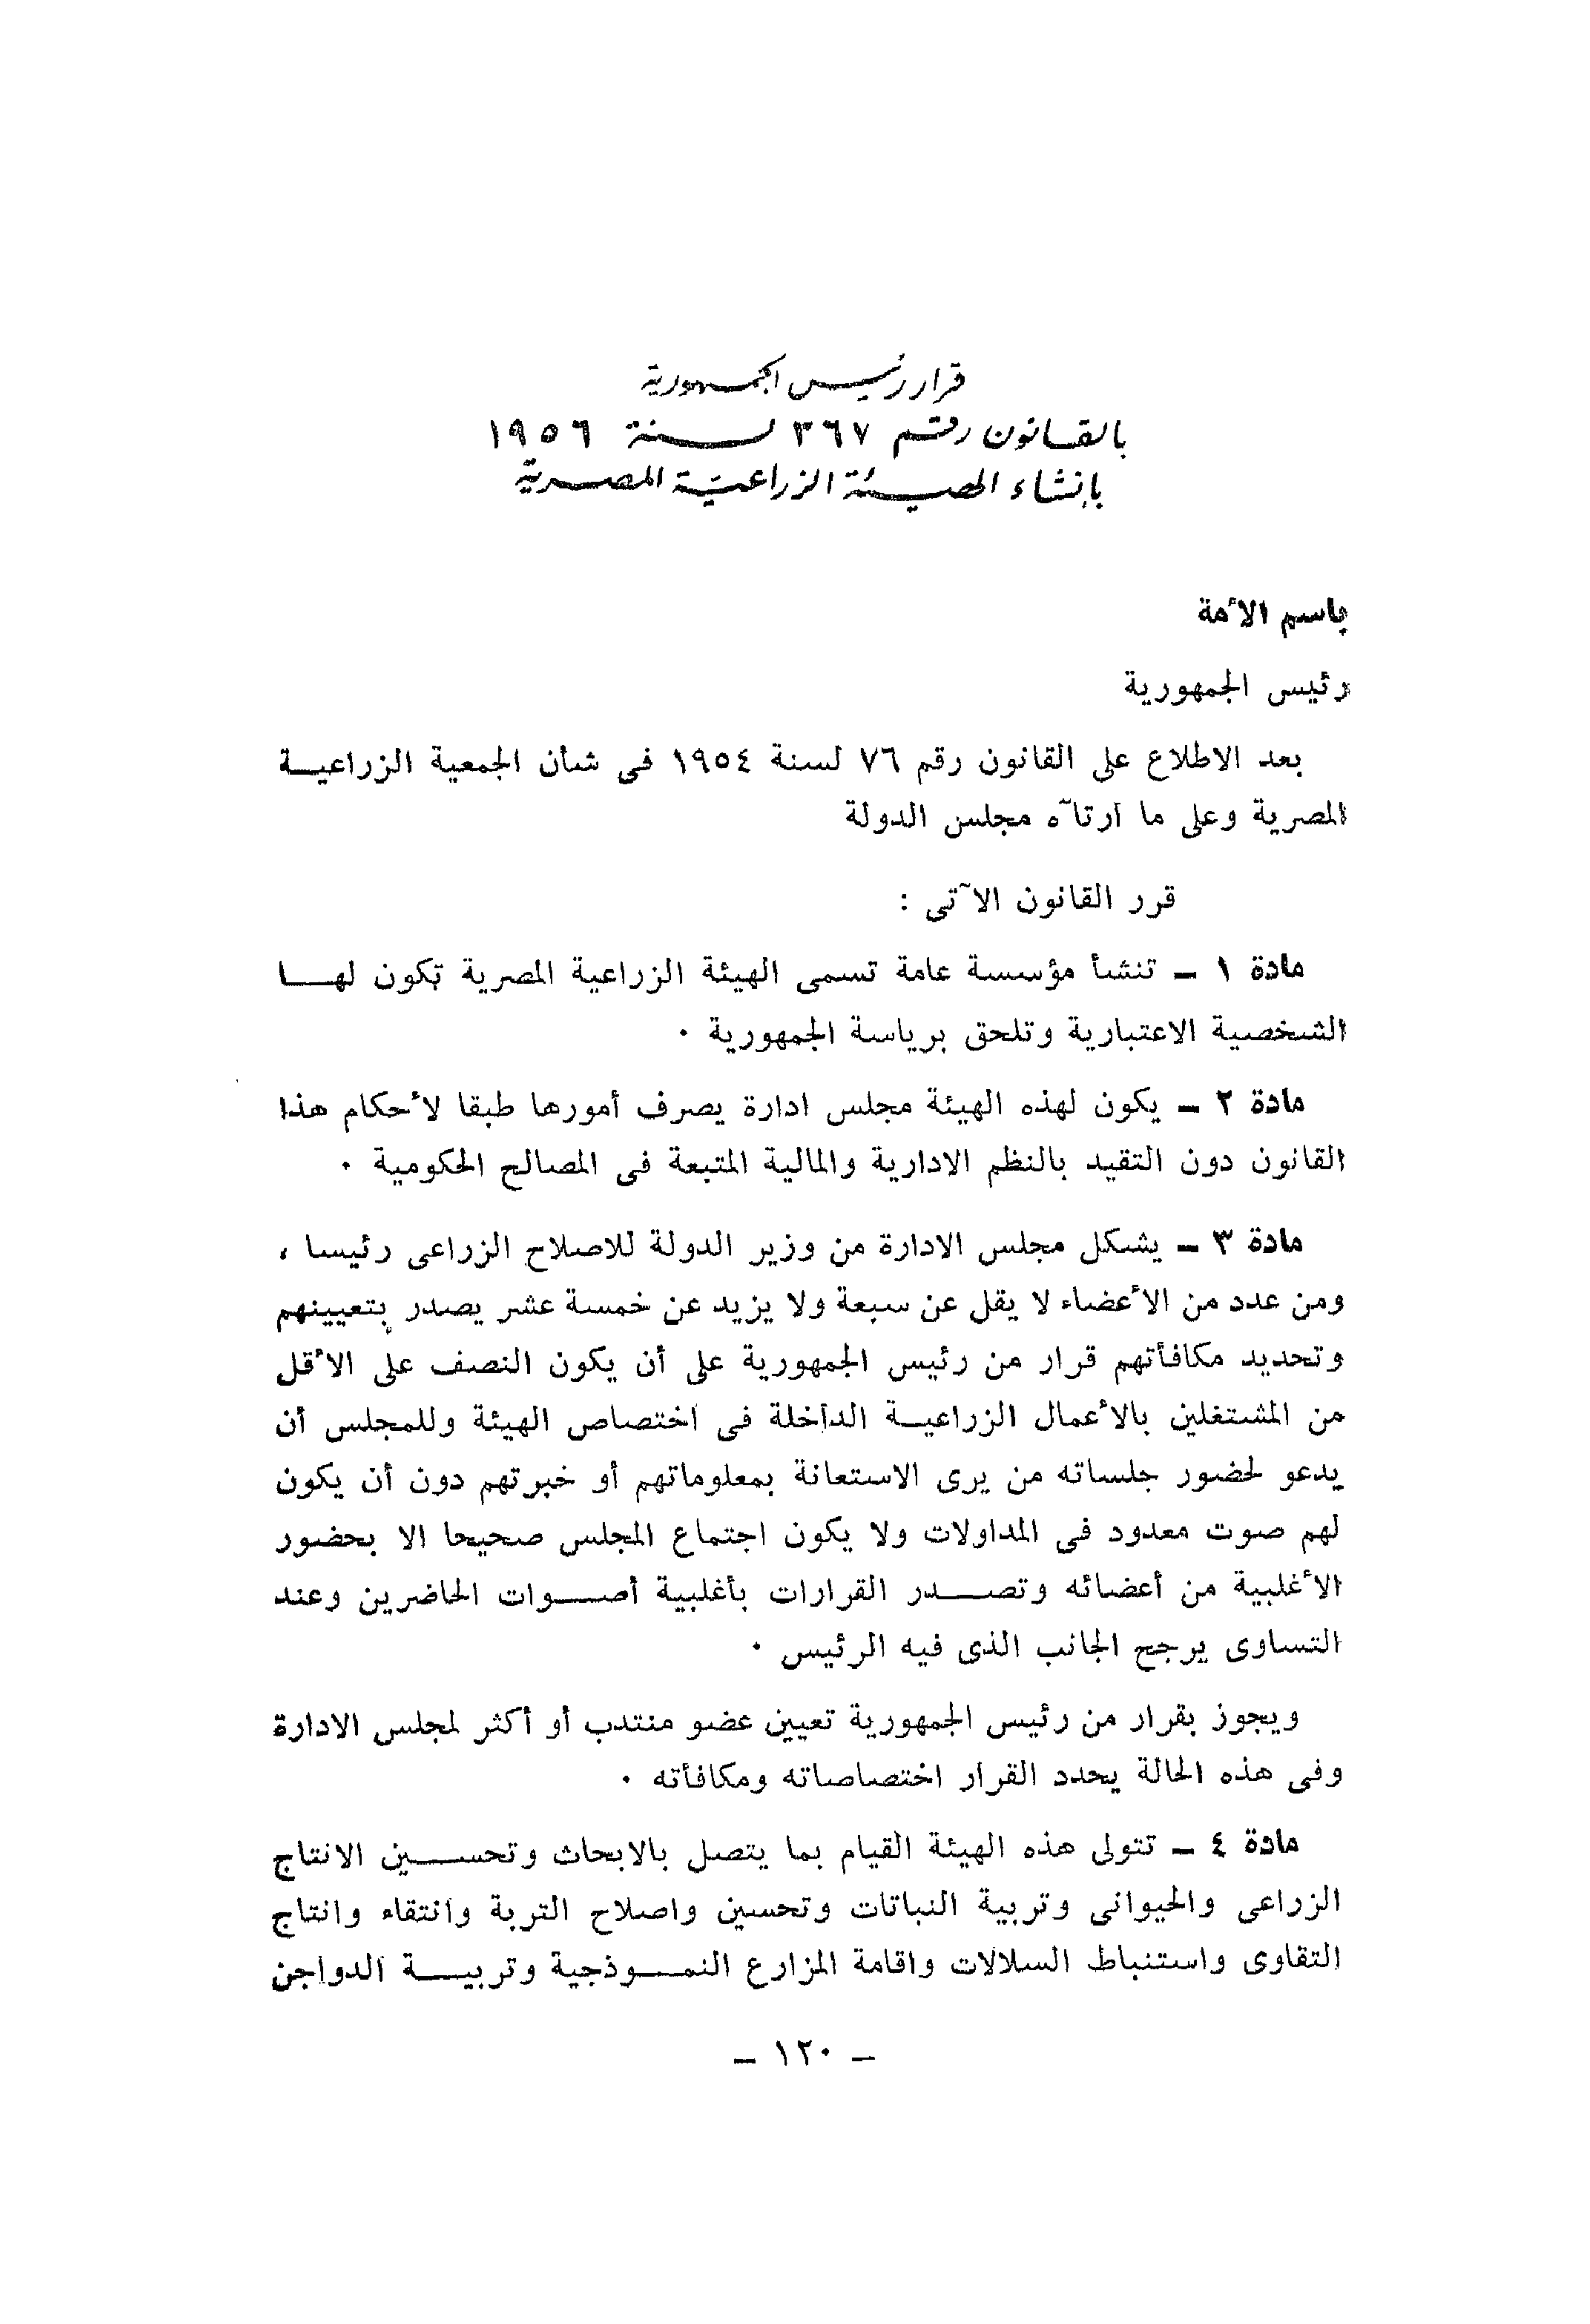 قرار رئيس الجمهورية
بالقانون رقم ٣٦٧ لسنة ١٩٥٦
بإنشاء الهيئة الزراعية المصرية
باسم الأمة
رئيس الجمهورية
بعد الاطلاع على القانون رقم ٧٦ لسنة ١٩٥٤ فى شأن الجمعية الزراعية
المصرية وعلى ما ارتآه مجلس الدولة
قرر القانون الآتى :
مادة ١ – تنشأ مؤسسة عامة تسمى الهيئة الزراعية المصرية تكون لها
الشخصية الاعتبارية وتلحق برياسة الجمهورية ٠
مادة ٢ – يكون لهذه الهيئة مجلس ادارة يصرف أمورها طبقا لأحكام هذا
القانون دون التقيد بالنظم الادارية والمالية المتبعة فى المصالح الحكومية ٠
مادة ٣ – يشكل مجلس الادارة من وزير الدولة للاصلاح الزراعى رئيسا ،
ومن عدد من الأعضاء لا يقل عن سبعة ولا يزيد عن خمسة عشر يصدر بتعيينهم
وتحديد مكافأتهم قرار من رئيس الجمهورية على أن يكون النصف على الأقل
من المشتغلين بالأعمال الزراعية الداخلة فى اختصاص الهيئة وللمجلس أن
يدعو لحضور جلساته من يرى الاستعانة بمعلوماتهم أو خبرتهم دون أن يكون
لهم صوت معدود فى المداولات ولا يكون اجتماع المجلس صحيحا الا بحضور
الأغلبية من أعضائه وتصدر القرارات بأغلبية أصوات الحاضرين وعند
التساوى يرجح الجانب الذى فيه الرئيس ٠
ويجوز بقرار من رئيس الجمهورية تعيين عضو منتدب أو أكثر لمجلس الادارة
وفى هذه الحالة يحدد القرار اختصاصاته ومكافأته ٠
مادة ٤ – تتولى هذه الهيئة القيام بما يتصل بالابحاث وتحسين الانتاج
الزراعى والحيوانى وتربية النباتات وتحسين واصلاح التربة وانتقاء وانتاج
التقاوى واستنباط السلالات واقامة المزارع النموذجية وتربية الدواجن
– ١٢٠ –